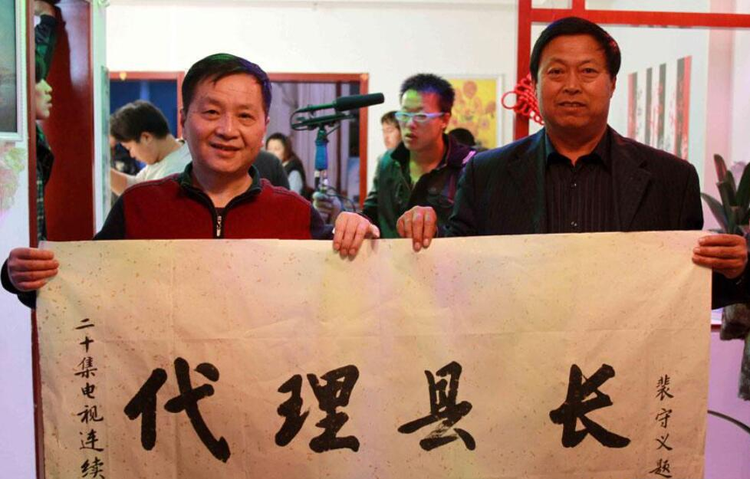 二十集电视连续
代理县长
裴守义题